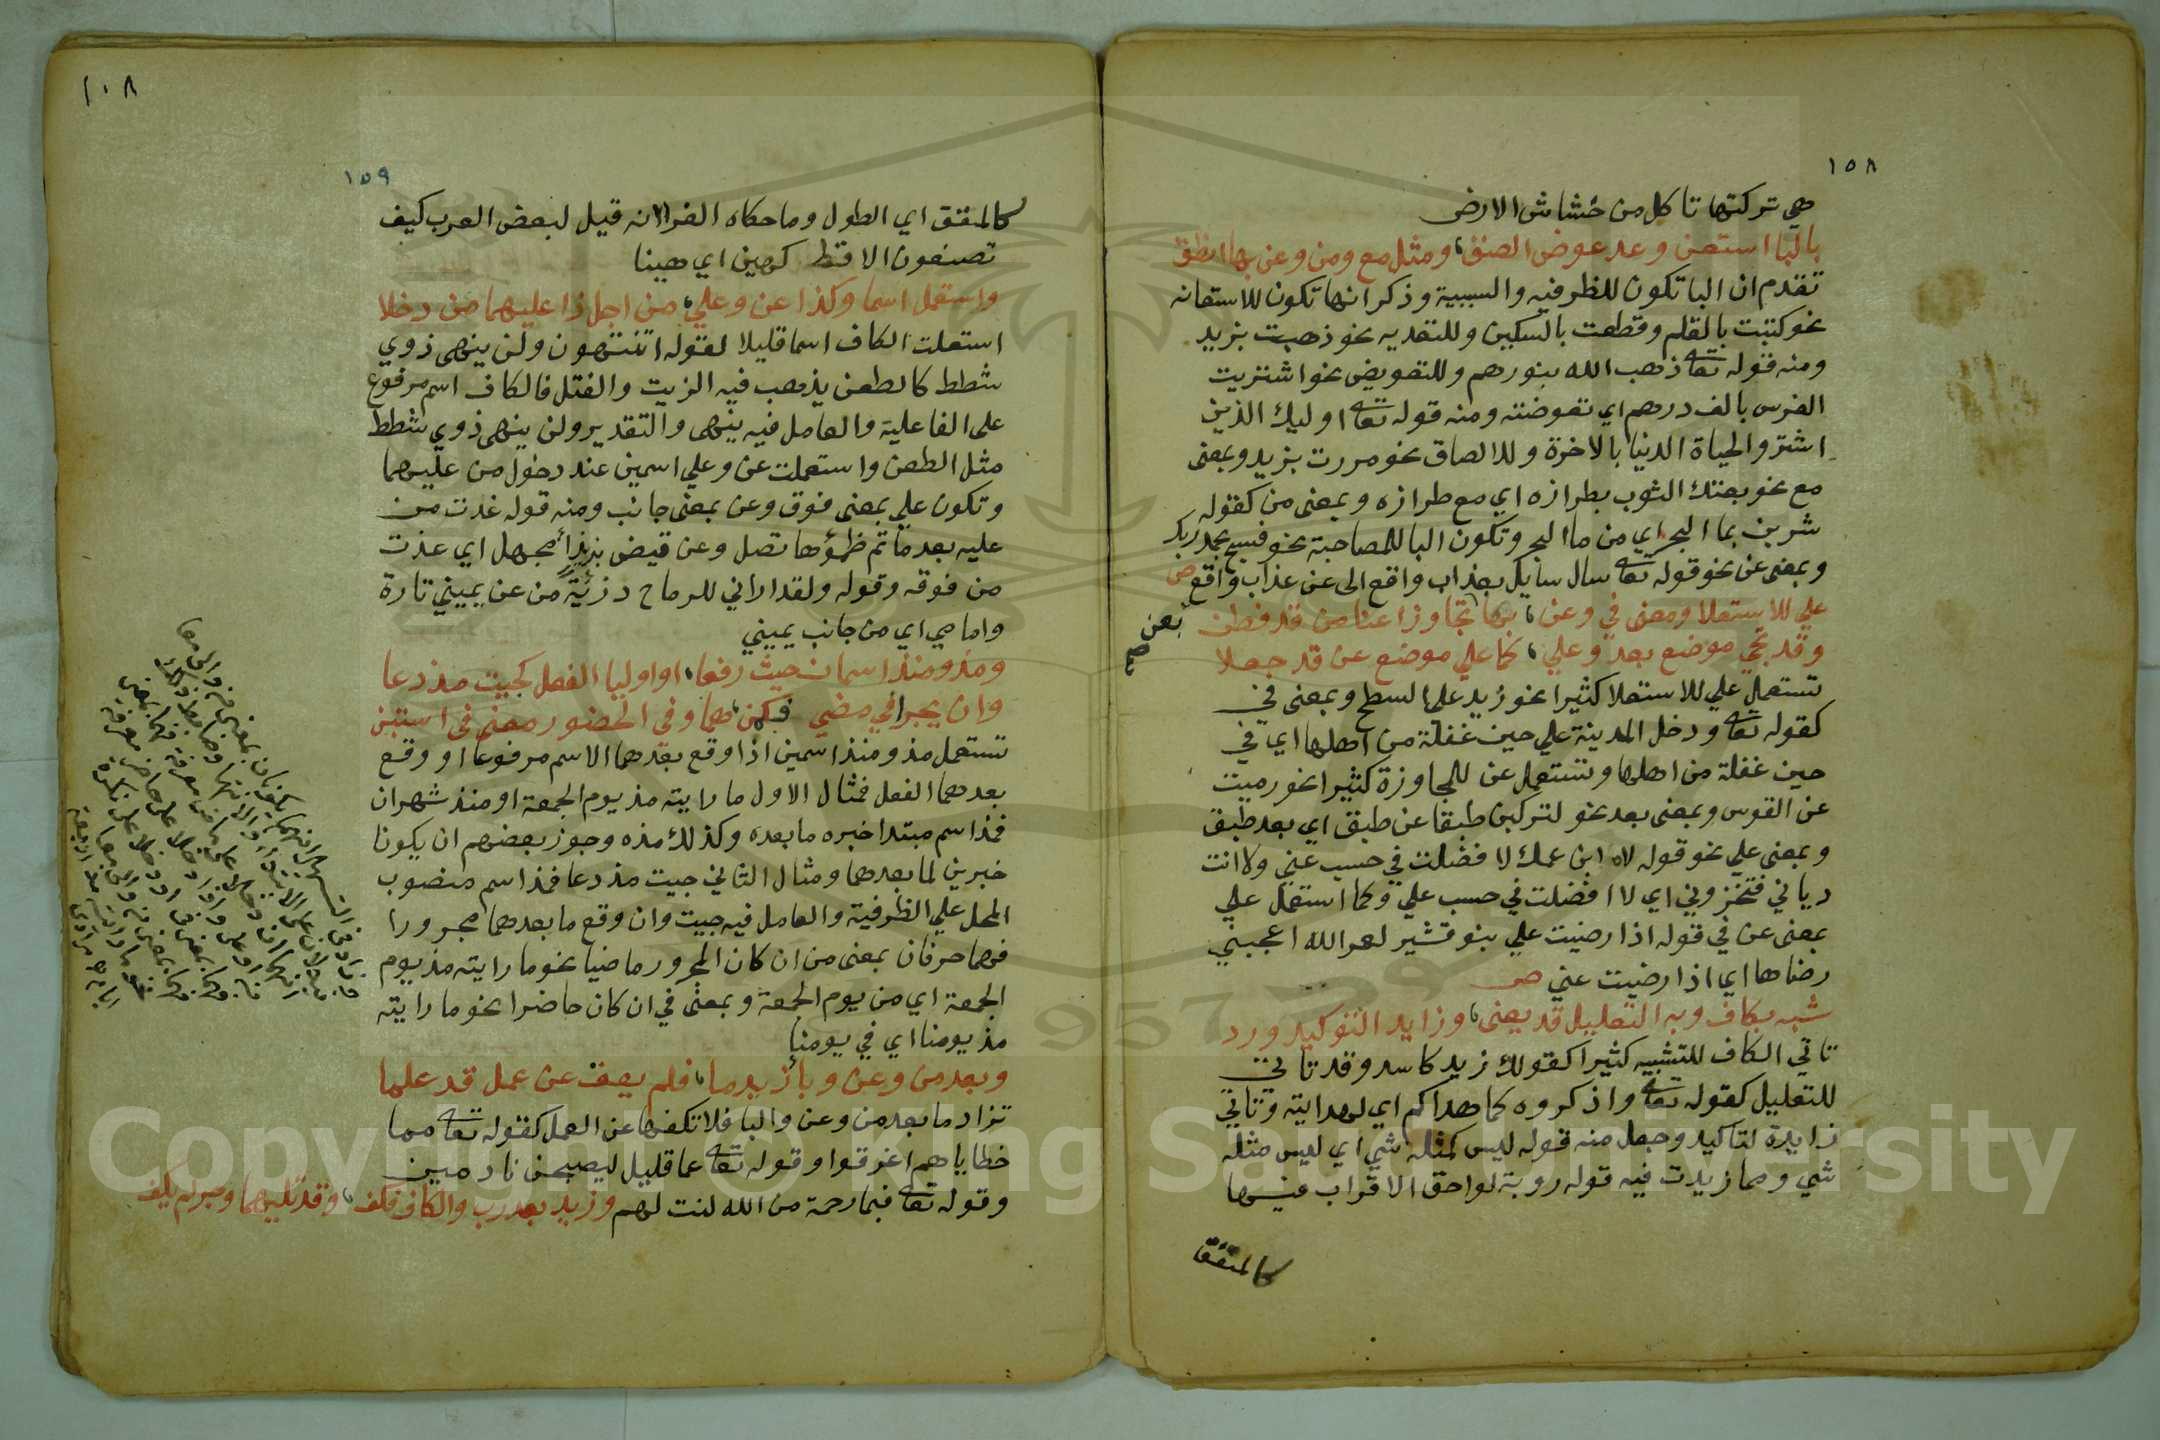 ١٥٨
هي تركتها تاكل من خشاش الارض
بالبا استعن وعد عوض الصق ومثل مع ومن وعن بها انطق
تقدم ان البا تكون للظرفيه والسببية وذكر انها تكون للاستعانه
نحو كتبت بالقلم وقطعت بالسكين وللتعديه نحو ذهبت بزيد
ومنه قوله تعا ذهب الله بنورهم وللتعويض نحو اشتريت
الفرس بالف درهم اي تعوضته ومنه قوله تعا اوليك الذين
اشتروا الحياة الدنيا بالاخرة وللالصاق نحو مررت بزيد وبمعنى
مع نحو بعتك الثوب بطرازه اي مع طرازه وبمعنى من كقوله
شربن بما البحر اي من ما البحر وتكون البا للمصاحبة نحو فسبح بحمد ربك
وبمعنى عن نحو قوله تعا سال سايل بعذاب واقع الى عن عذاب واقع ص
علي للاستعلا ومعنى في وعن بعن تجاوزا عنا من قد فطن
بعن صح
وقد تجي موضع بعد وعلي كما علي موضع عن قد جعلا
تستعمل علي للاستعلا كثيرا نحو زيد على السطح وبمعنى في
كقوله تعا ودخل المدينة علي حين غفلة من اهلها اي في
حين غفلة من اهلها وتستعمل عن للمجاوزة كثيرا نحو رميت
عن القوس وبمعنى بعد نحو لتركبن طبقا عن طبق اي بعد طبق
وبمعنى علي نحو قوله لاه ابن عمك لا فضلت في حسب عني ولا انت
دياني فتخزوني اي لا افضلت في حسب علي وكما استعمل علي
بمعنى عن في قوله اذا رضيت علي بنو قشير لعمر الله اعجبني
رضاها اي اذا رضيت عني ص
شبه بكاف وبه التعليل قد يعنى وزايد التوكيد ورد
تاتي الكاف للتشبيه كثيرا كقولك زيد كاسد وقد تاتي
للتعليل كقوله تعا واذكروه كما هداكم اي لهدايته وتاتي
زايدة لتاكيد وجعل منه قوله ليس كمثله شي اي ليس مثله
شي ومما زيدت فيه قوله روبة لواحق الاقراب فيها
كالمقق
١٠٨
١٥٩
كالمقق اي الطول وما حكاه الفرا انه قيل لبعض العرب كيف
تصنعون الاقط كهين اي هينا
واستعمل اسما وكذا عن وعلي من اجل ذا عليهما من دخلا
استعملت الكاف اسما قليلا لقوله اتنتهون ولن ينهى ذوي
شطط كالطعن يذهب فيه الزيت والفتل فالكاف اسم مرفوع
على الفاعلية والعامل فيه ينهى والتقدير ولن ينهى ذوي شطط
مثل الطعن واستعملت عن وعلي اسمين عند دخول من عليهما
وتكون علي بمعنى فوق وعن بمعنى جانب ومنه قوله غدت من
عليه بعد ما تم ظمؤها تصل وعن قيض بزيزا مجهل اي غدت
من فوقه وقوله ولقد اراني للرماح درئية من عن يميني تارة
وامامي اي من جانب يميني
ومذ ومنذ اسمان حيث رفعا او اوليا الفعل كجيت مذ دعا
وان يجرا في مضي فكمن هما وفي الحضور معنى في استبن
تستعمل مذ ومنذ اسمين اذا وقع بعدهما الاسم مرفوعا او وقع
بعدهما الفعل فمثال الاول ما رايته مذ يوم الجمعة او منذ شهران
فمذ اسم مبتدا خبره ما بعده وكذلك منذ وجوز بعضهم ان يكونا
خبرين لما بعدهما ومثال الثاني جيت مذ دعا فمذ اسم منصوب
المحل علي الظرفية والعامل فيه جيت وان وقع ما بعدهما مجرورا
فهما حرفان بمعنى من ان كان المجرور ماضيا نحو ما رايته مذ يوم
الجمعة اي من يوم الجمعة وبمعنى في ان كان حاضرا نحو ما رايته
مذ يومنا اي في يومنا
وبعد من وعن وبا زيد ما فلم يعق عن عمل قد علما
تزاد ما بعد من وعن والبا فلا تكفها عن العمل كقوله تعا مما
خطاياهم اغرقوا وقوله تعا عما قليل ليصبحن نادمين
وقوله تعا فبما رحمة من الله لنت لهم وزيد بعد رب والكاف فكف وقد تليهما وجر لم يكف
Copyright © King Saud University
1957